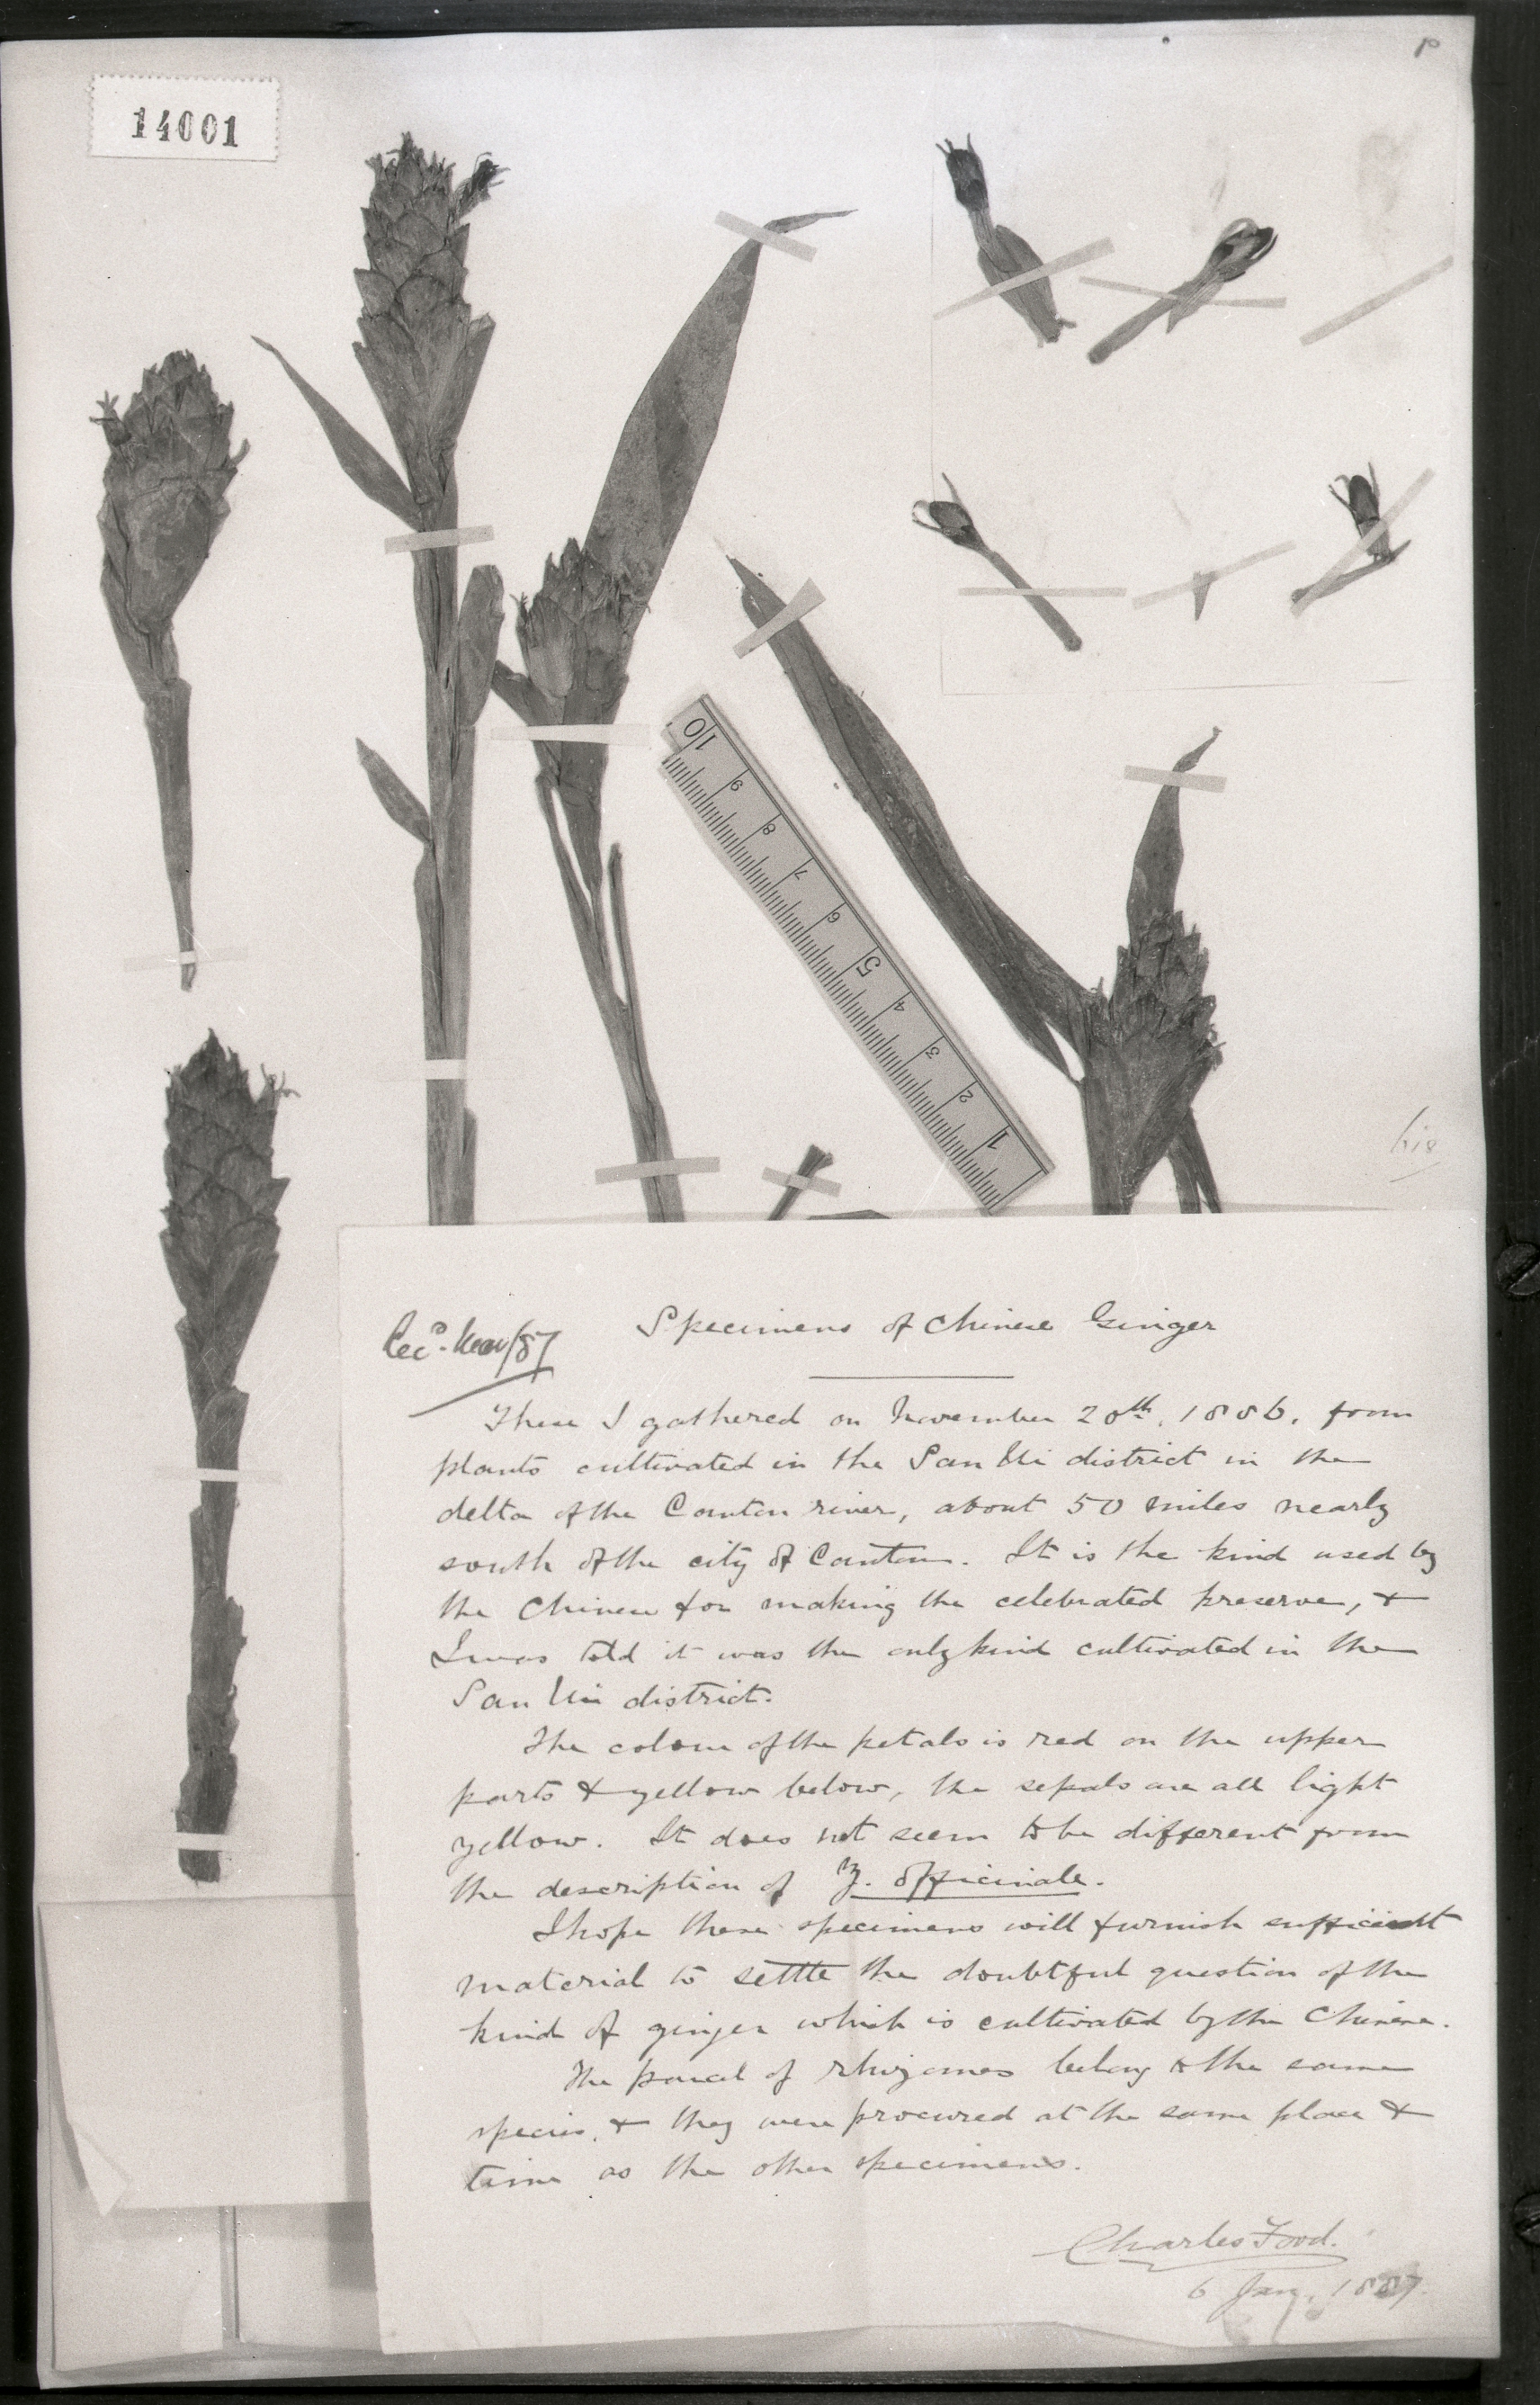 14001
10
9
8
7
6
5
4
3
2
1
Specimens of Chinese Ginger
These I gathered on November 20th, 1886, from
plants cultivated in the San Ui district in the
delta of the Canton river, about 50 miles nearly
south of the city of Canton. It is the kind used by
the Chinese for making the celebrated preserve, &
I was told it was the only kind cultivated in the
San Ui district.
The colour of the petals is red on the upper
parts & yellow below, the sepals are all light
yellow. It does not seem to be different from
the description of Z. officinale.
I hope these specimens will furnish sufficient
material to settle the doubtful question of the
kind of ginger which is cultivated by the Chinese.
The parcel of rhizomes belong to the same
species, & they were procured at the same place &
time as the other specimens.
Charles Ford.
6 Jan. 1887.